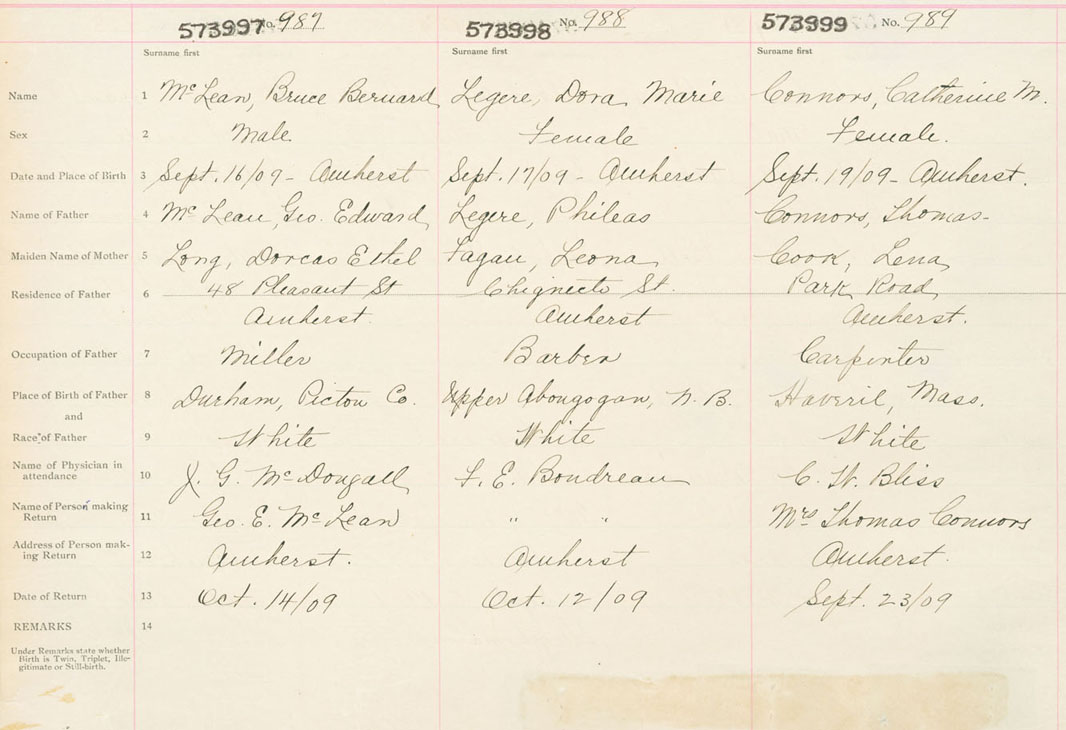 573997 No. 987 573998 No. 988 573999 No. 989
Surname first Surname first Surname first
Name 1 McLean, Bruce Bernard Legere, Dora Marie Connors, Catherine M.
Sex 2 Male Female Female.
Date and Place of Birth 3 Sept. 16/09 - Amherst Sept. 17/09 - Amherst Sept. 19/09 - Amherst.
Name of Father 4 McLean, Geo. Edward Legere, Phileas Connors, Thomas-
Maiden Name of Mother 5 Long, Dorcas Ethel Fagan, Leona Cook, Lena
Residence of Father 6 48 Pleasant St Chignecto St. Park Road,
Amherst. Amherst Amherst.
Occupation of Father 7 Miller Barber Carpenter
Place of Birth of Father 8 Durham, Pictou Co. Upper Abougogan, N. B. Haveril, Mass.
and
Race of Father 9 White White White
Name of Physician in
attendance 10 J. G. McDougall F. E. Boudreau C. W. Bliss
Name of Person making
Return 11 Geo. E. McLean " " Mrs Thomas Connors
Address of Person mak-
ing Return 12 Amherst. Amherst Amherst.
Date of Return 13 Oct. 14/09 Oct. 12/09 Sept. 23/09
REMARKS 14
Under Remarks state whether
Birth is Twin, Triplet, Ille-
gitimate or Still-birth.